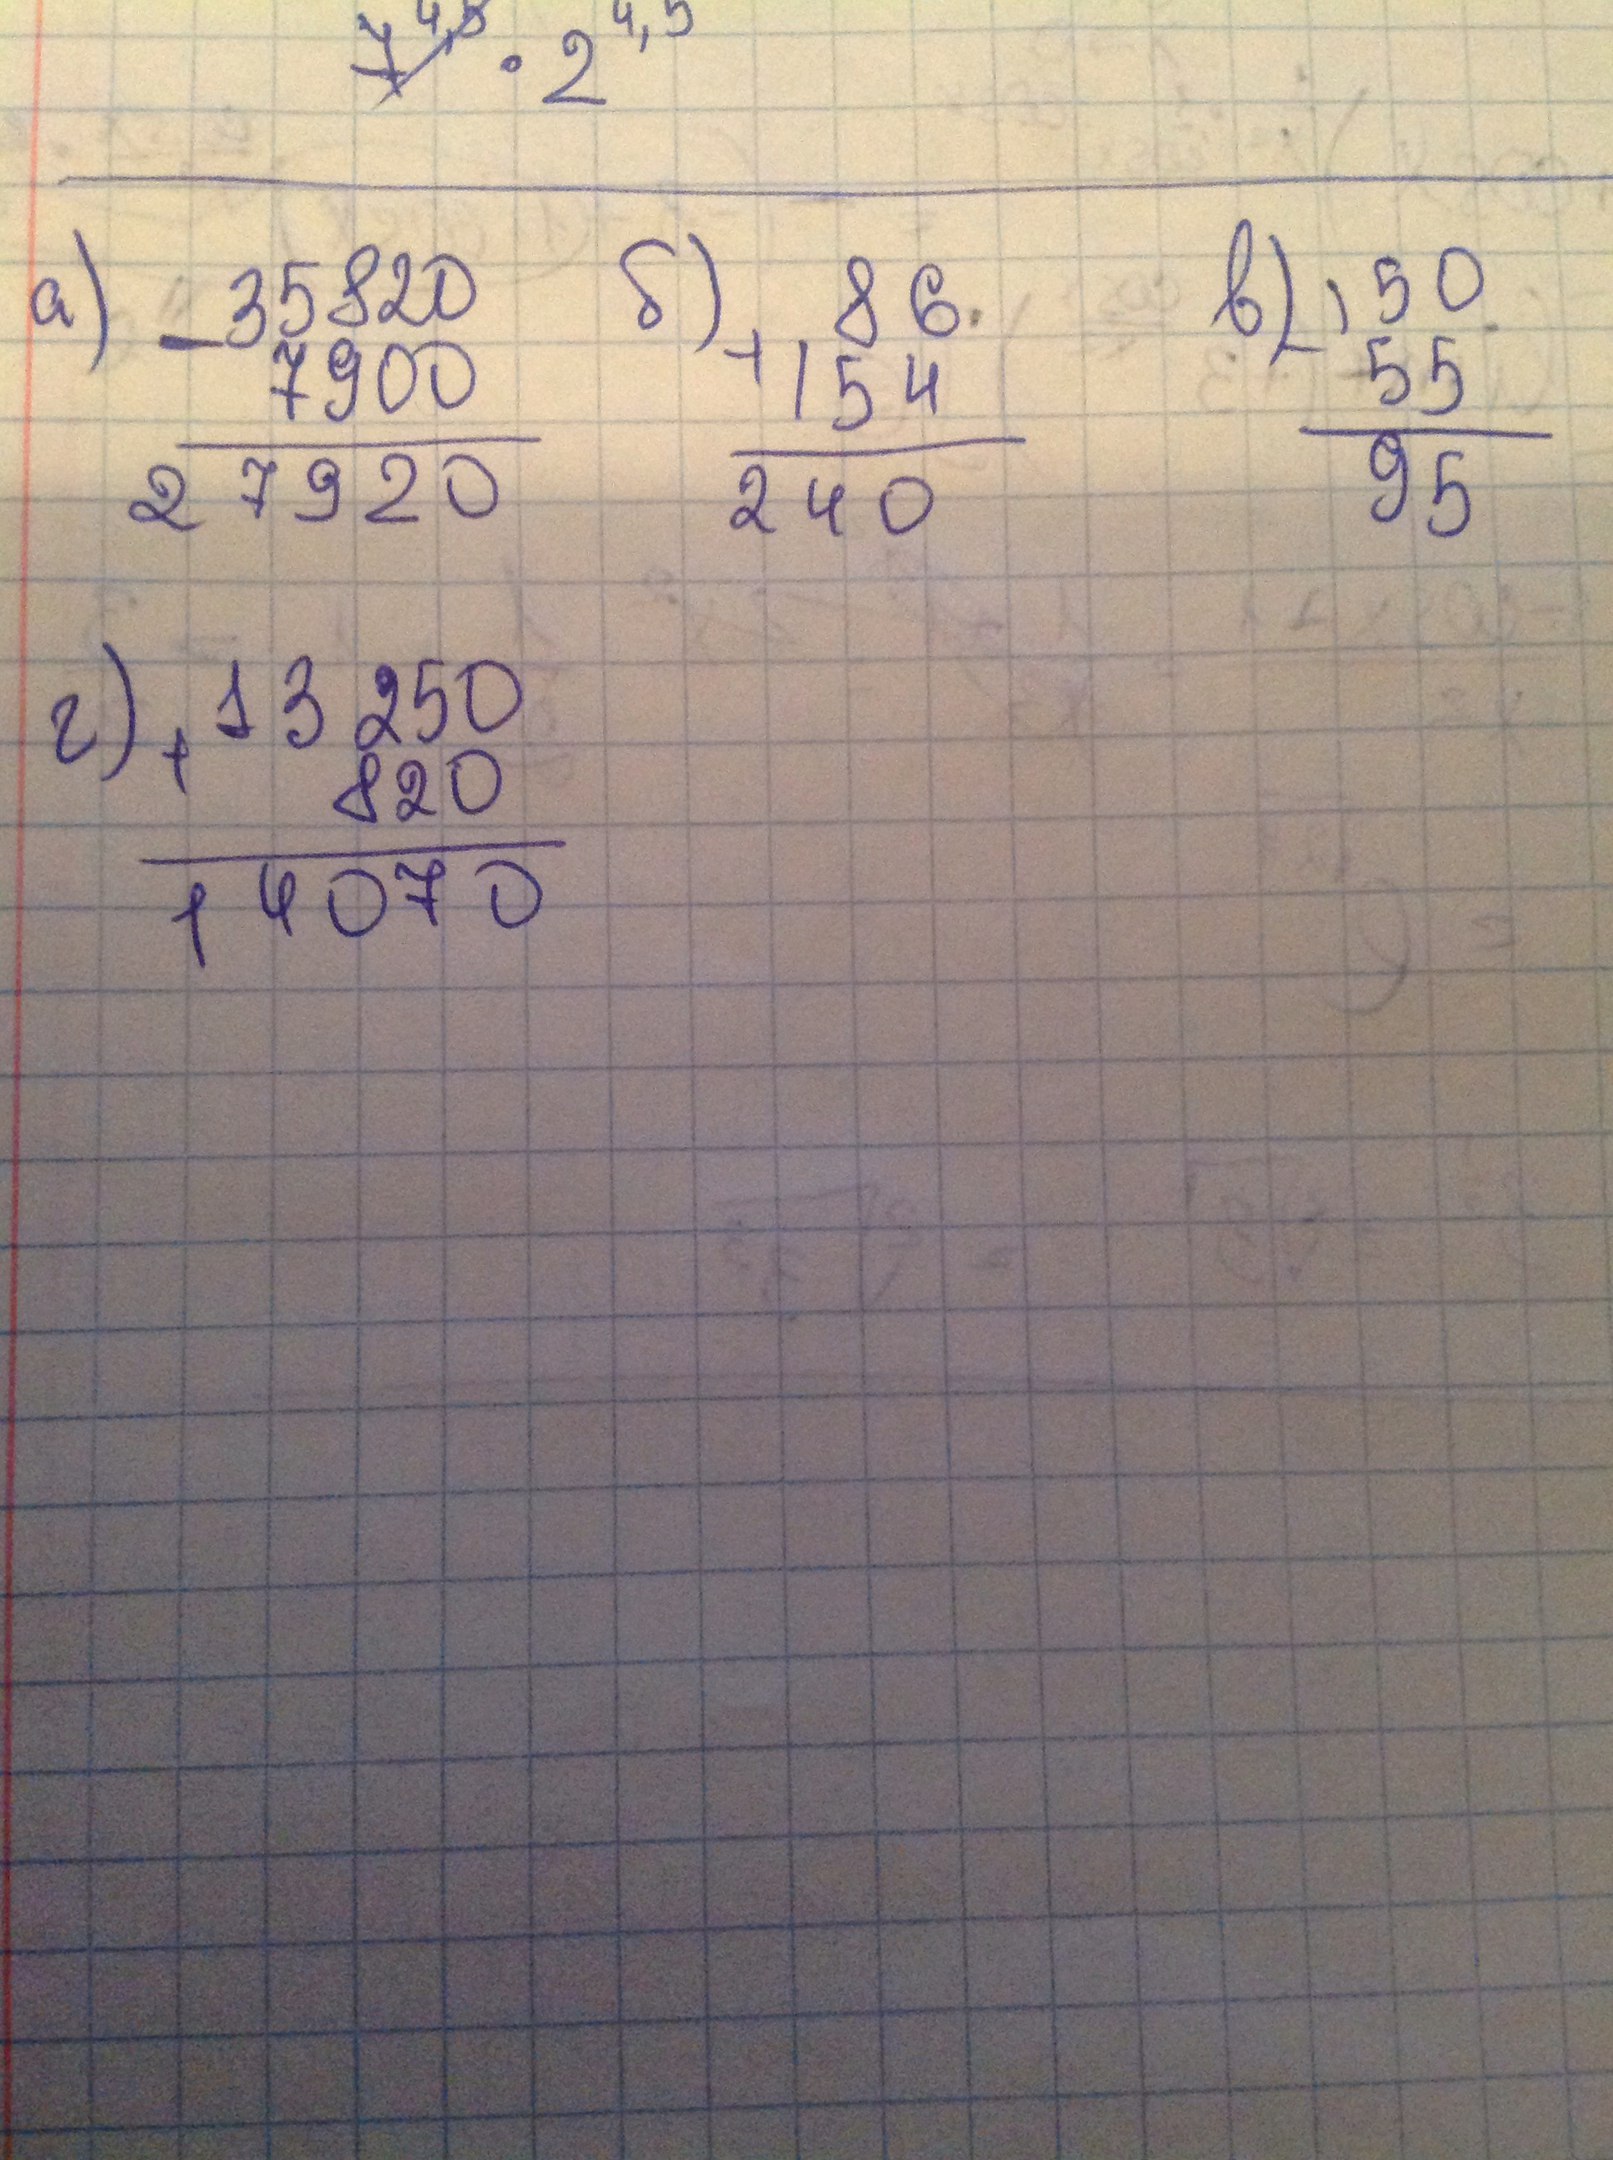 7^4,5 · 2^4,5
а) - 35820 б) + 86 в) - 150
7900 154 55
27920 240 95
г) + 13 250
820
14070